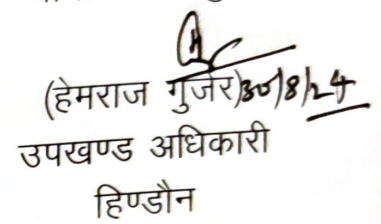 (हेमराज गुर्जर) 30/8/24
उपखण्ड अधिकारी
हिण्डौन